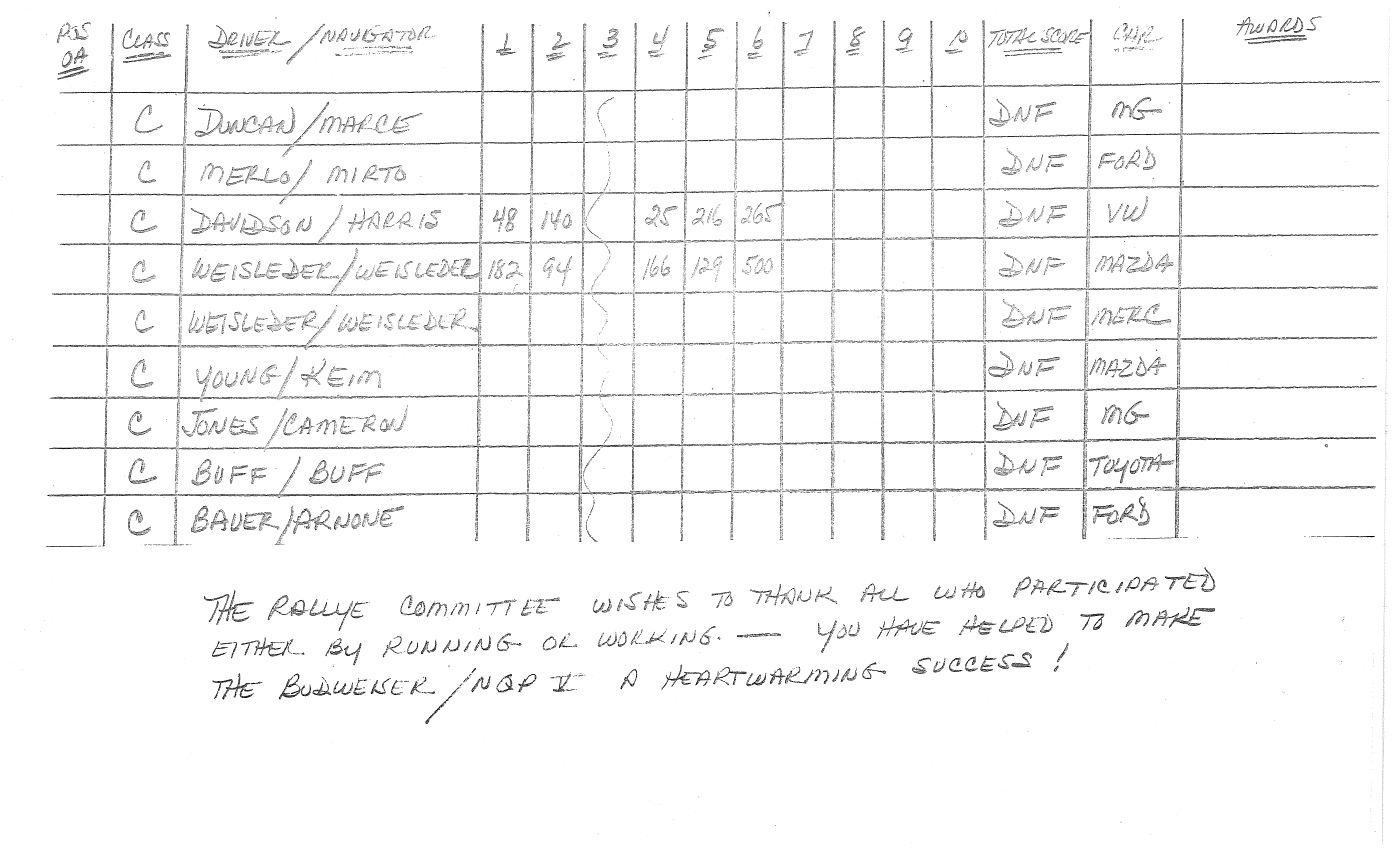 POS OA CLASS DRIVER/NAVIGATOR 1 2 3 4 5 6 7 8 9 10 TOTAL SCORE CAR AWARDS
C DUNCAN/MARCE DNF MG
C MERLO/MIRTO DNF FORD
C DAVIDSON/HARRIS 48 140 25 216 265 DNF VW
C WEISLEDER/WEISLEDER 182 94 166 129 500 DNF MAZDA
C WEISLEDER/WEISLEDER DNF MERC
C YOUNG/KEIM DNF MAZDA
C JONES/CAMERON DNF MG
C BUFF/BUFF DNF TOYOTA
C BAUER/ARNONE DNF FORD
THE RALLYE COMMITTEE WISHES TO THANK ALL WHO PARTICIPATED
EITHER BY RUNNING OR WORKING. — YOU HAVE HELPED TO MAKE
THE BUDWEISER/NQP V A HEARTWARMING SUCCESS!